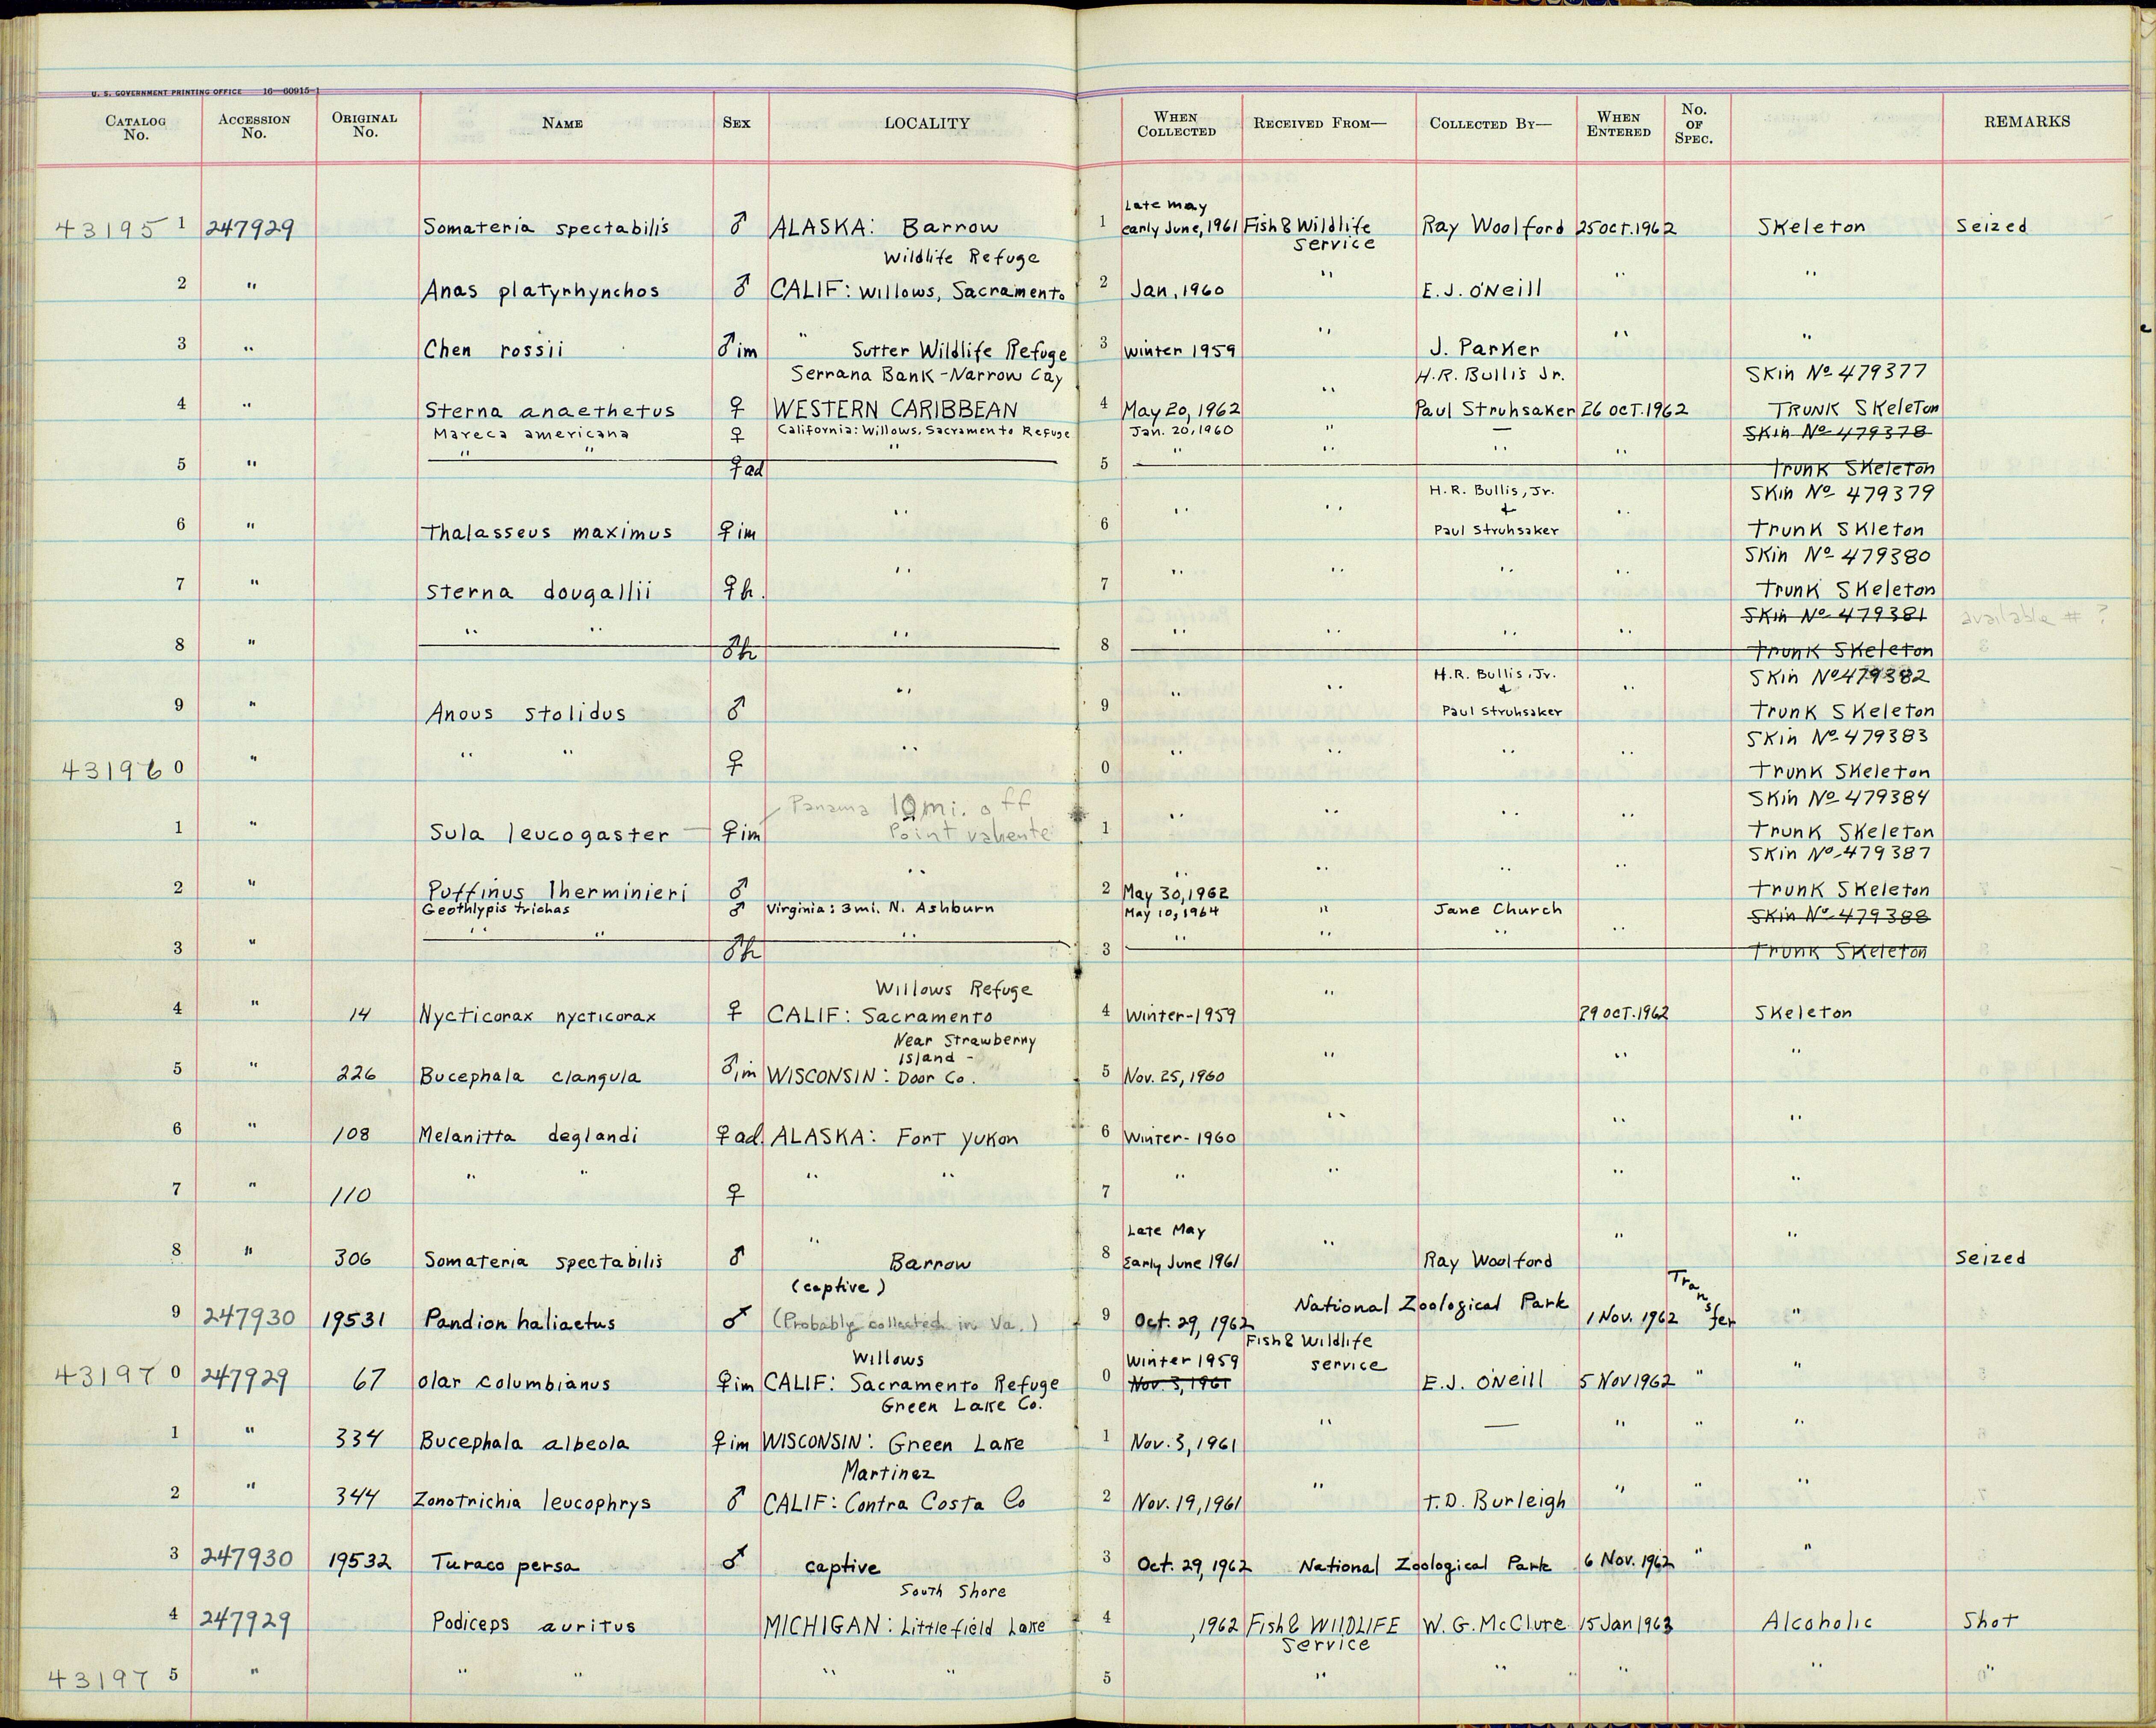 U. S. GOVERNMENT PRINTING OFFICE 16—60915-1
CATALOG No. ACCESSION No. ORIGINAL No. NAME SEX LOCALITY WHEN COLLECTED RECEIVED FROM— COLLECTED BY— WHEN ENTERED No. OF SPEC. REMARKS
Late May
43195 1 247929 Somateria spectabilis ♂ ALASKA: Barrow 1 early June, 1961 Fish & Wildlife Ray Woolford 25 Oct. 1962 Skeleton Seized
Service
Wildlife Refuge
2 " Anas platyrhynchos ♂ CALIF: Willows, Sacramento 2 Jan, 1960 " E. J. O'Neill " "
3 " Chen rossii ♂ im " Sutter Wildlife Refuge 3 Winter 1959 " J. Parker " "
Serrana Bank - Narrow Cay H. R. Bullis Jr. Skin No 479377
4 " Sterna anaethetus ♀ WESTERN CARIBBEAN 4 May 20, 1962 " Paul Struhsaker 26 Oct. 1962 TRUNK Skeleton
Mareca americana ♀ California: Willows, Sacramento Refuge Jan. 20, 1960 " — Skin No 479378
5 " " " ♀ ad " 5 " " " " Trunk Skeleton
H. R. Bullis, Jr. Skin No 479379
&
6 " Thalasseus maximus ♀ im " 6 " " Paul Struhsaker " Trunk Skleton
Skin No 479380
7 " Sterna dougallii ♀ h. " 7 " " " " Trunk Skeleton
Skin No 479381 available # ?
8 " " " ♂ h " 8 " " " " Trunk Skeleton
H. R. Bullis, Jr. Skin No 479382
&
9 " Anous stolidus ♂ " 9 " " Paul Struhsaker " Trunk Skeleton
Skin No 479383
43196 0 " " " ♀ " 0 " " " " Trunk Skeleton
Panama 10 mi. off Skin No 479384
1 " Sula leucogaster ♀ im Point valiente 1 " " " " Trunk Skeleton
Skin No 479387
2 " Puffinus lherminieri ♂ " 2 May 30, 1962 " " " Trunk Skeleton
Geothlypis trichas ♂ Virginia: 3mi. N. Ashburn May 10, 1964 " Jane Church Skin No 479388
3 " " " ♂ h " 3 " " " " Trunk Skeleton
Willows Refuge
4 " 14 Nycticorax nycticorax ♀ CALIF: Sacramento 4 Winter-1959 " 29 Oct. 1962 Skeleton
Near Strawberry
Island -
5 " 226 Bucephala clangula ♂, im WISCONSIN: Door Co. 5 Nov. 25, 1960 " " "
6 " 108 Melanitta deglandi ♀ ad. ALASKA: Fort Yukon 6 Winter- 1960 " " "
7 " 110 " " ♀ " " 7 " " " "
Late May
8 " 306 Somateria spectabilis ♂ " Barrow 8 Early June 1961 " Ray Woolford " " Seized
(captive)
9 247930 19531 Pandion haliaetus ♂ (Probably collected in Va.) 9 Oct. 29, 1962 National Zoological Park 1 Nov. 1962 Transfer "
Willows Winter 1959 Fish & Wildlife
43197 0 247929 67 olar columbianus ♀ im CALIF: Sacramento Refuge 0 Nov. 3, 1961 Service E. J. O'Neill 5 Nov 1962 " "
Green Lake Co.
1 " 334 Bucephala albeola ♀ im WISCONSIN: Green Lake 1 Nov. 3, 1961 " — " " "
Martinez
2 " 344 Zonotrichia leucophrys ♂ CALIF: Contra Costa Co 2 Nov. 19, 1961 " T. D. Burleigh " " "
3 247930 19532 Turaco persa ♂ captive 3 Oct. 29, 1962 National Zoological Park 6 Nov. 1962 " "
South Shore
4 247929 Podiceps auritus MICHIGAN: Littlefield Lake 4 , 1962 Fish & WILDLIFE W. G. McClure 15 Jan 1963 Alcoholic Shot
Service
43197 5 " " " " " 5 " " " " " "